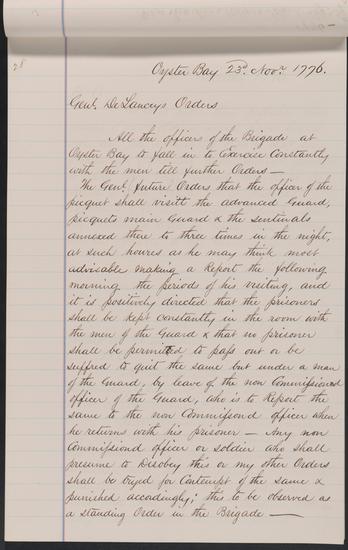 28
Oyster Bay 23d Novr 1776.
Genl. DeLanceys Orders
All the officers of the Brigade at
Oyster Bay to fall in to Exercise Constantly
with the men till further Orders —
The Genl. future Orders that the officer of the
picquet shall visitt the advanced Guard,
picquets main Guard & the sentinals
annexed there to three times in the night,
at such houres as he may think most
advisable making a Report the following
morning the periods of his visiting, and
it is positively directed that the prisoners
shall be kept constantly in the room with
the men of the Guard & that no prisoner
shall be permitted to pass out or be
suffred to quit the same but under a man
of the Guard, by leave of the non Commissioned
officer of the Guard, who is to Report the
same to the non Commissiond officer when
he returns with his prisoner — Any non
Commissiond officer or soldier who shall
presume to Desobey this or my other Orders
shall be tryed for Contempt of the same &
punished accordingly; this to be observed as
a standing Order in the Brigade —